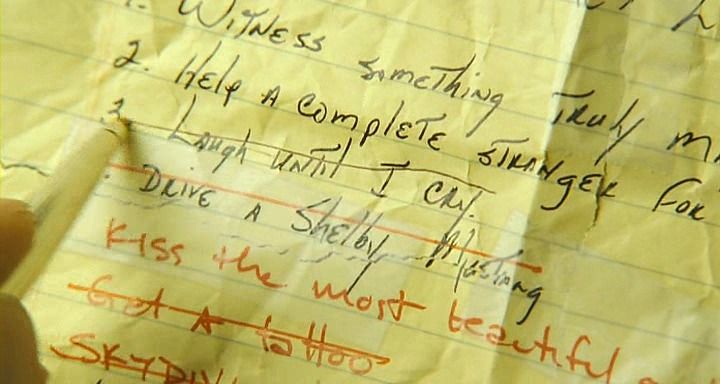 1. Witness something truly
2. Help a complete stranger for
3. Laugh until I cry.
Drive a Shelby Mustang
Kiss the most beautiful
Get a tattoo